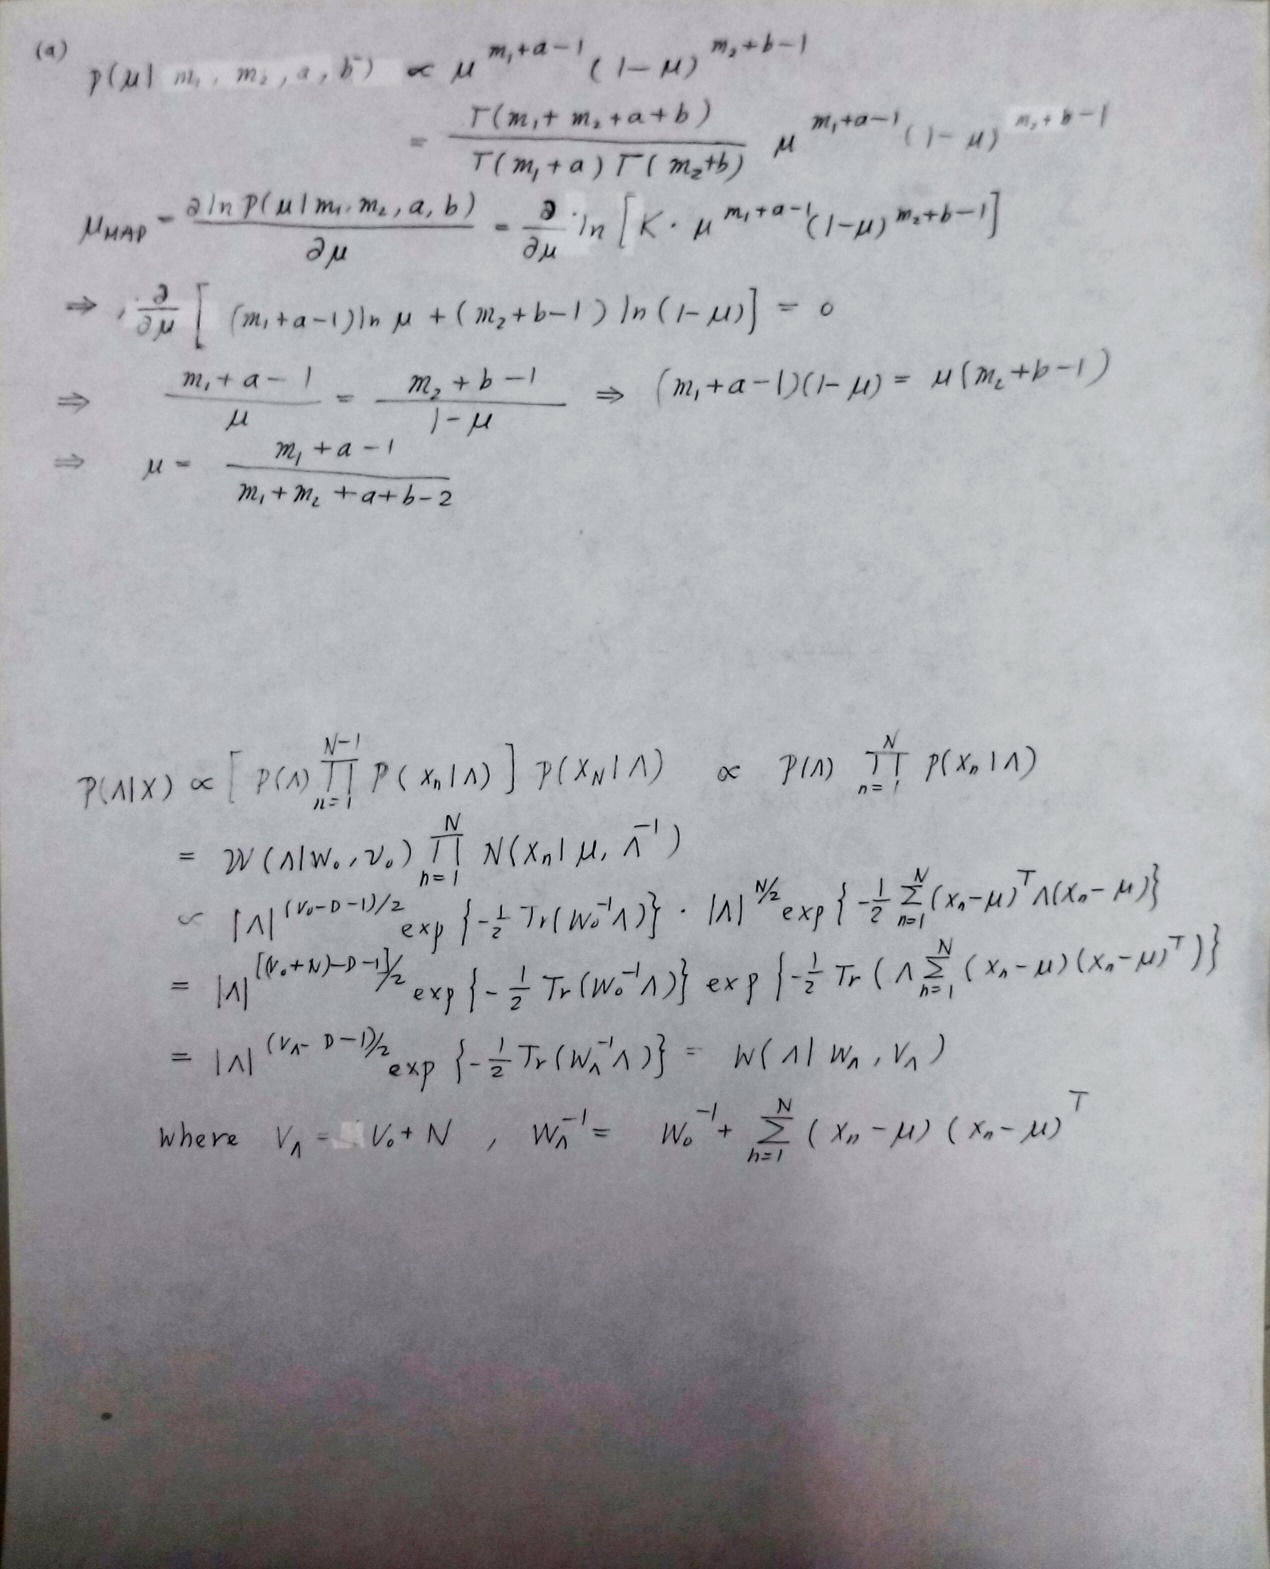 (a) p(μ| m₁, m₂, a, b) ∝ μ^{m₁+a-1} (1-μ)^{m₂+b-1}
= \frac{Γ(m₁+m₂+a+b)}{Γ(m₁+a)Γ(m₂+b)} μ^{m₁+a-1} (1-μ)^{m₂+b-1}
μ_{MAP} = \frac{∂ln P(μ|m₁, m₂, a, b)}{∂μ} = \frac{∂}{∂μ} ln [K · μ^{m₁+a-1} (1-μ)^{m₂+b-1}]
⇒ \frac{∂}{∂μ} [(m₁+a-1)ln μ + (m₂+b-1) ln(1-μ)] = 0
⇒ \frac{m₁+a-1}{μ} = \frac{m₂+b-1}{1-μ} ⇒ (m₁+a-1)(1-μ) = μ(m₂+b-1)
⇒ μ = \frac{m₁+a-1}{m₁+m₂+a+b-2}
P(Λ|X) ∝ [P(Λ) ∏_{n=1}^{N-1} P(x_n|Λ)] P(x_N|Λ) ∝ P(Λ) ∏_{n=1}^{N} P(x_n|Λ)
= W(Λ|W₀, ν₀) ∏_{n=1}^{N} N(x_n|μ, Λ^{-1})
∝ |Λ|^{(V₀-D-1)/2} exp{-\frac{1}{2} Tr(W₀^{-1}Λ)} · |Λ|^{N/2} exp{-\frac{1}{2} Σ_{n=1}^{N} (x_n-μ)^T Λ(x_n-μ)}
= |Λ|^{[(V₀+N)-D-1]/2} exp{-\frac{1}{2} Tr(W₀^{-1}Λ)} exp{-\frac{1}{2} Tr(Λ Σ_{n=1}^{N} (x_n-μ)(x_n-μ)^T)}
= |Λ|^{(V_Λ-D-1)/2} exp{-\frac{1}{2} Tr(W_Λ^{-1}Λ)} = W(Λ|W_Λ, V_Λ)
where V_Λ = V₀+N , W_Λ^{-1} = W₀^{-1} + Σ_{n=1}^{N} (x_n-μ)(x_n-μ)^T